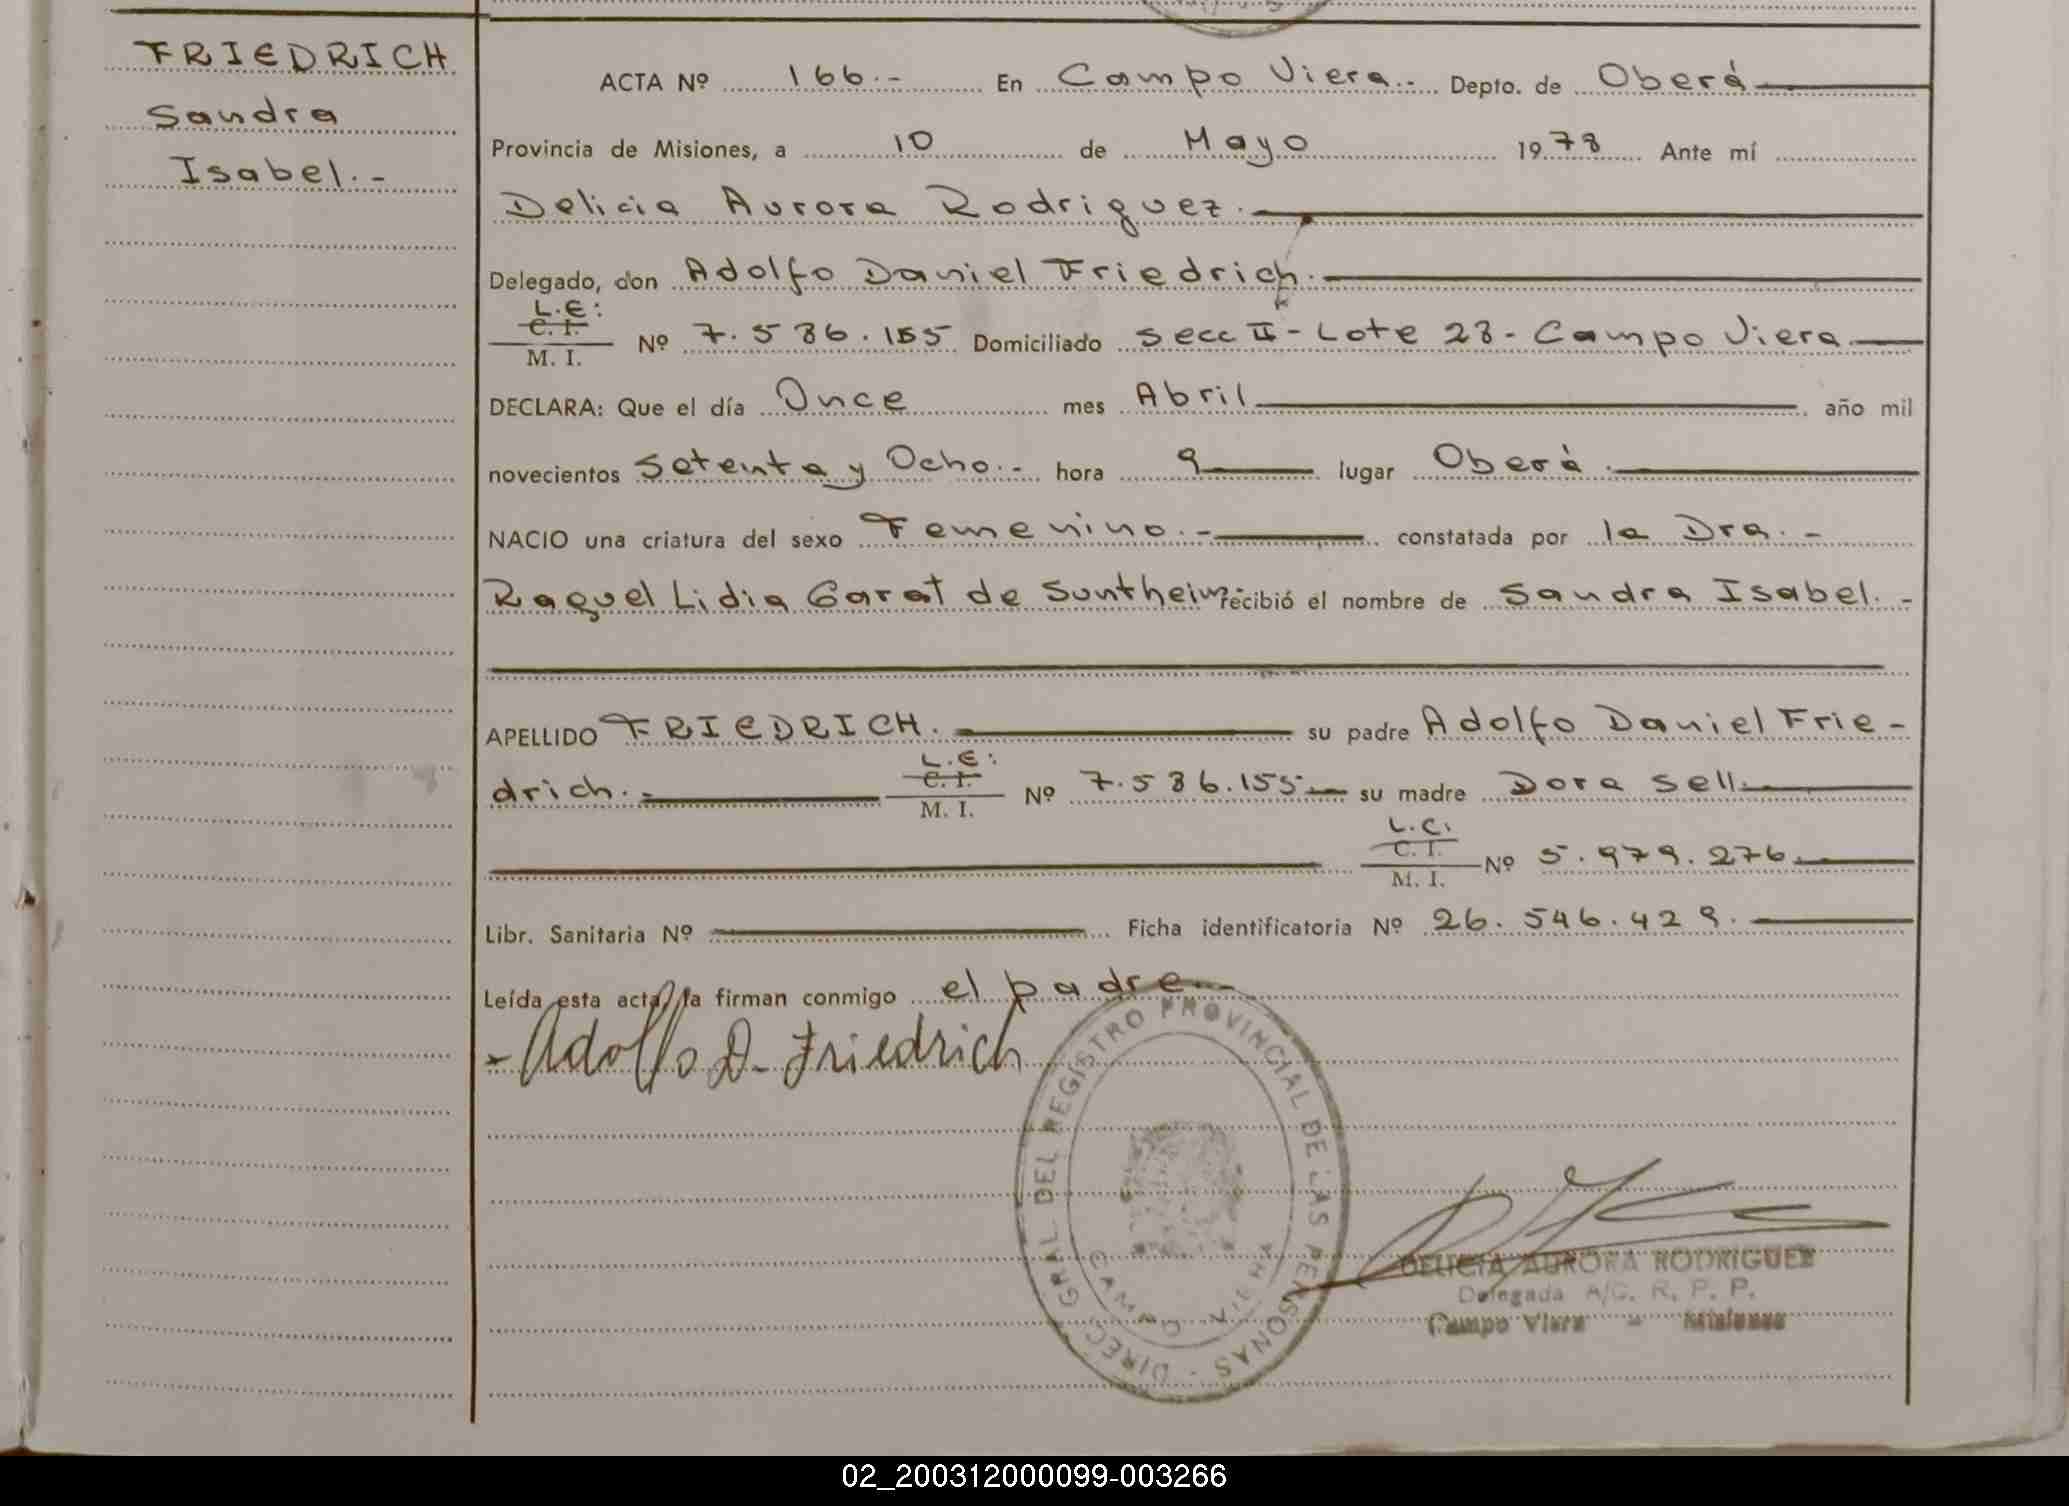 FRIEDRICH
Sandra
Isabel.-
ACTA Nº 166.- En Campo Viera.- Depto. de Oberá
Provincia de Misiones, a 10 de Mayo 1978 Ante mí
Delicia Aurora Rodriguez.
Delegado, don Adolfo Daniel Friedrich.
L.E:
C. I.
M. I. Nº 7.586.155 Domiciliado Secc II - Lote 28 - Campo Viera.
DECLARA: Que el día Once mes Abril año mil
novecientos Setenta y Ocho.- hora 9 lugar Oberá.
NACIO una criatura del sexo Femenino.- constatada por la Dra.-
Raquel Lidia Garat de Suntheim recibió el nombre de Sandra Isabel.-
APELLIDO FRIEDRICH. su padre Adolfo Daniel Frie-
drich.- L.E: C. I. M. I. Nº 7.586.155 su madre Dora Sell.
L.C. C. I. M. I. Nº 5.979.276.
Libr. Sanitaria Nº Ficha identificatoria Nº 26.546.429.
Leída esta acta, la firman conmigo el padre.-
Adolfo D. Friedrich
DIRECC. GRAL DEL REGISTRO PROVINCIAL DE LAS PERSONAS -
CAMPO VIERA
DELICIA AURORA RODRIGUEZ
Delegada A/C. R. P. P.
Campo Viera - Misiones
02_200312000099-003266